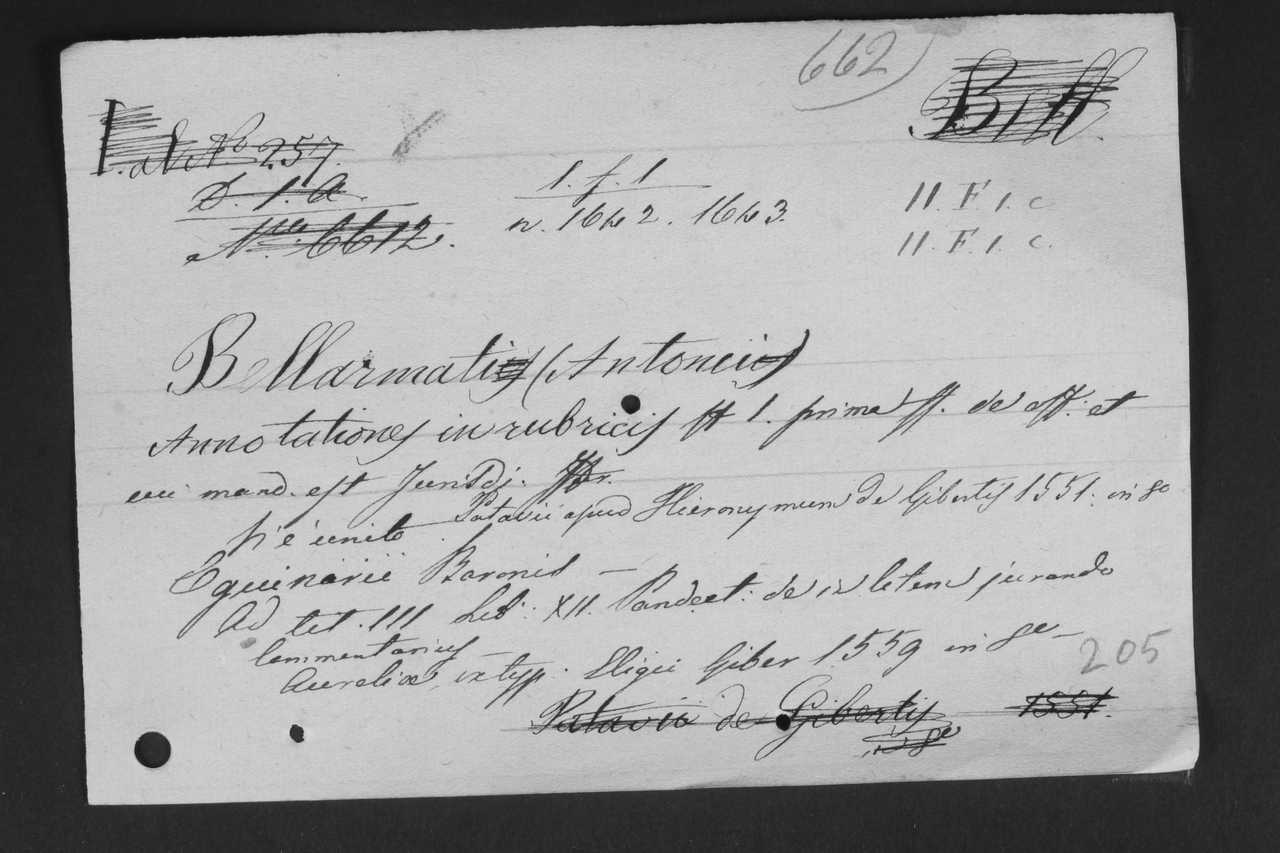 662)
Bill.
a No. 257.
D. 1. A.
No. 6612.
1. f. 1
n. 1642. 1643.
11. F. 1. c
11. F. 1. c.
Bellarmati (Antonii)
Annotationes in rubricis ff 1. prima ff. de off. et
cui mand. est Jurisdi.
Patavii apud Hieronymum de Gibertis 1551. in 8o
Vi è unito
Eguinarii Baronis —
Ad tit. III Lib: XII. Pandect: de in litem jurando
Commentarius
Aureliae, ex typ. Eligii Giber 1559 in 8e —
205
Patavii de Gibertis 1551.
in 8e